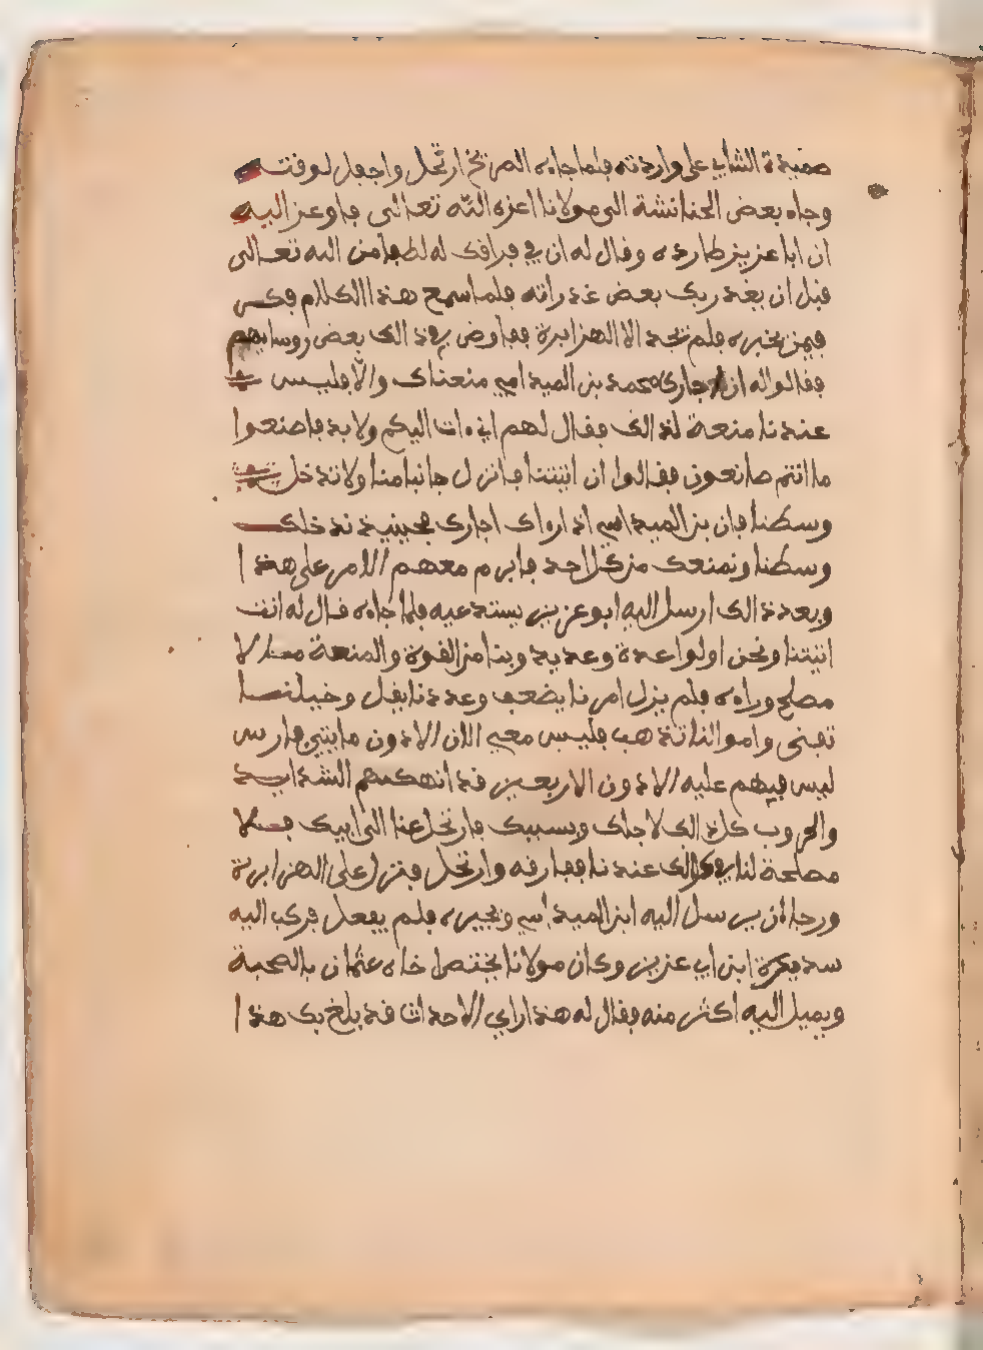 صميدة الشابي على واردته فلما جاءه الصريخ ارتحل واجفل لوقته
وجاه بعض الحنانشة الى مولانا اعزه الله تعالى فاوعز اليه
ان ابا عزيز طارده وقال له ان في فراقك له لطفا من الله تعالى
قبل ان يغدر بك بعض غدراته فلما سمع هذا الكلام فكر
فيمن يخبره فلم يجد الا الهزابرة ففاوض في ذلك بعض روسايهم
فقالوا له ان اجارك محمد بن الميداسي منعناك والا فليس
عندنا منعة لذلك فقال لهم اني ءات اليكم ولا بد فاصنعوا
ما انتم صانعون فقالوا ان اتيتنا فانزل جانبا منا ولا تدخل
وسطنا فان بن الميداسي اذا راك اجارك فحينيذ ندخلك
وسطنا ونمنعك من كل احد فابرم معهم الامر على هذا
وبعد ذلك ارسل اليه ابو عزيز يستدعيه فلما جاه قال له انك
اتيتنا ونحن اولوا عدة وعديد وبنا من القوة والمنعة ما لا
مطمح وراه فلم يزل امرنا يضعف وعددنا يقل وخيلنا
تفنى واموالنا تذهب فليس معي الان الا دون مايتي فارس
ليس فيهم عليه الا دون الاربعين قد انهكتهم الشدايد
والحروب كل ذلك لاجلك وبسببك فارتحل عنا الى ابيك فلا
مصلحة لنا في ذلك عندنا ففارقه وارتحل فنزل على الهزابرة
ورجا ان يرسل اليه ابن الميداسي ويجيره فلم يفعل فركب اليه
ابن ابي عزيز وكان مولانا يختص اخاه عثمان بالصحبة
ويميل اليه اكثر منه فقال له هذا راي الاحداث قد بلغ بك هذا